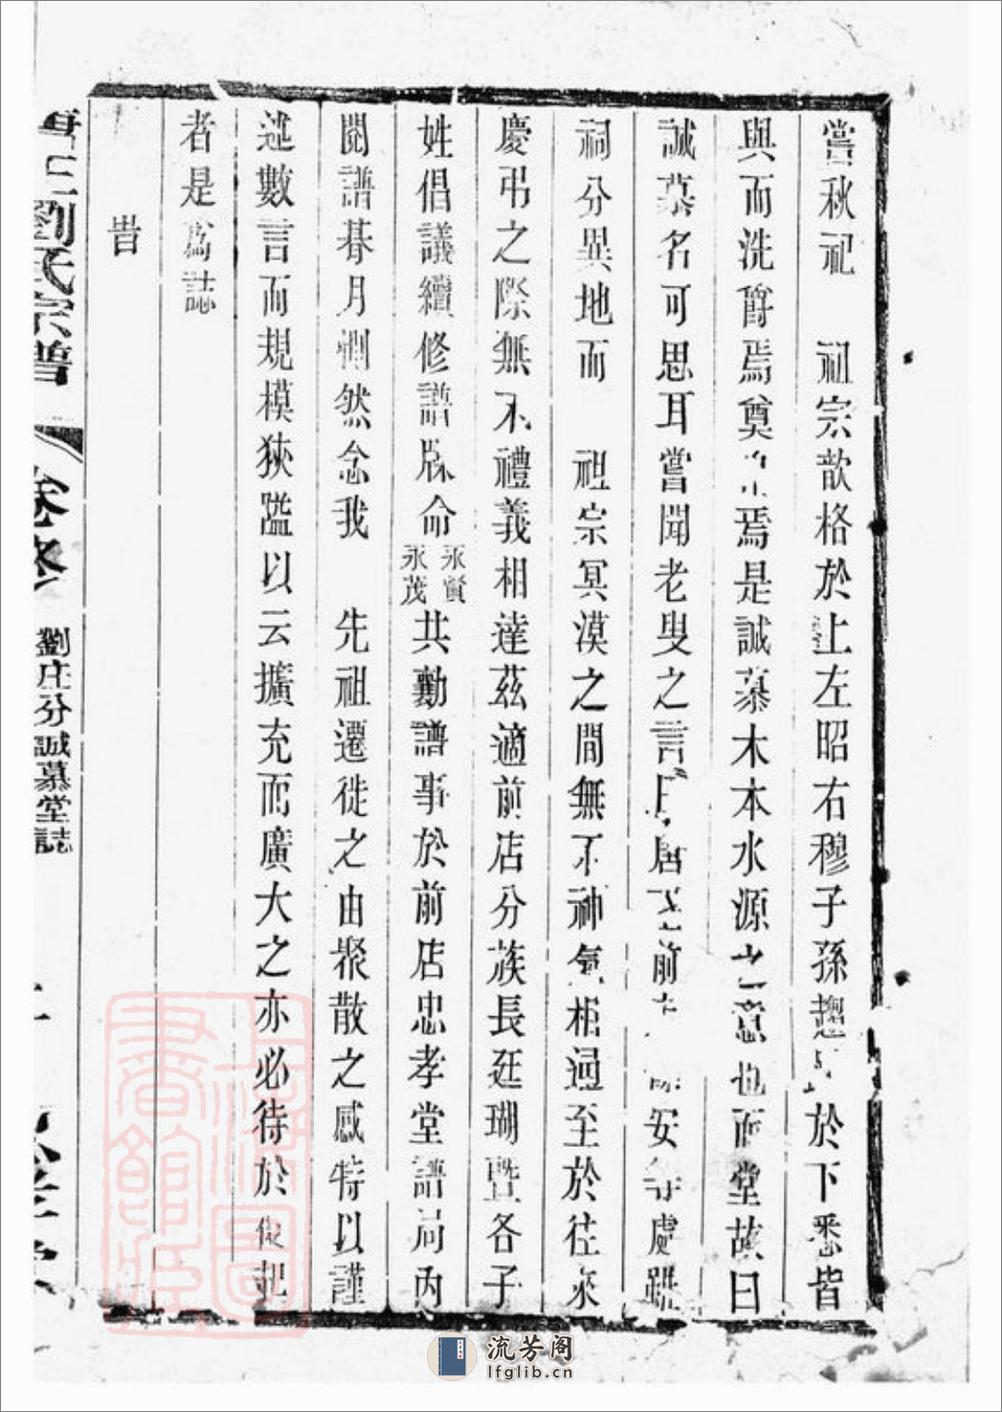 嘗秋祀 祖宗歆格於上左昭右穆子孫趨 於下悉皆
與而洗爵焉奠 焉是誠慕木本水源之意也而堂故曰
誠慕名可思耳嘗聞老叟之言 居 前 安 處雖
祠分異地而 祖宗冥漠之間無不神氣相通至於往來
慶弔之際無不禮義相達茲適前店分族長廷瑚暨各子
姓倡議續修譜牒命永賢永茂共勷譜事於前店忠孝堂譜局內
閱譜朞月惻然念我 先祖遷徙之由聚散之感特以謹
述數言而規模狹隘以云擴充而廣大之亦必待於 起
者是為誌
旹
劉氏宗譜
劉庄分誠慕堂誌
上海圖書館藏
流芳阁
lfglib.cn